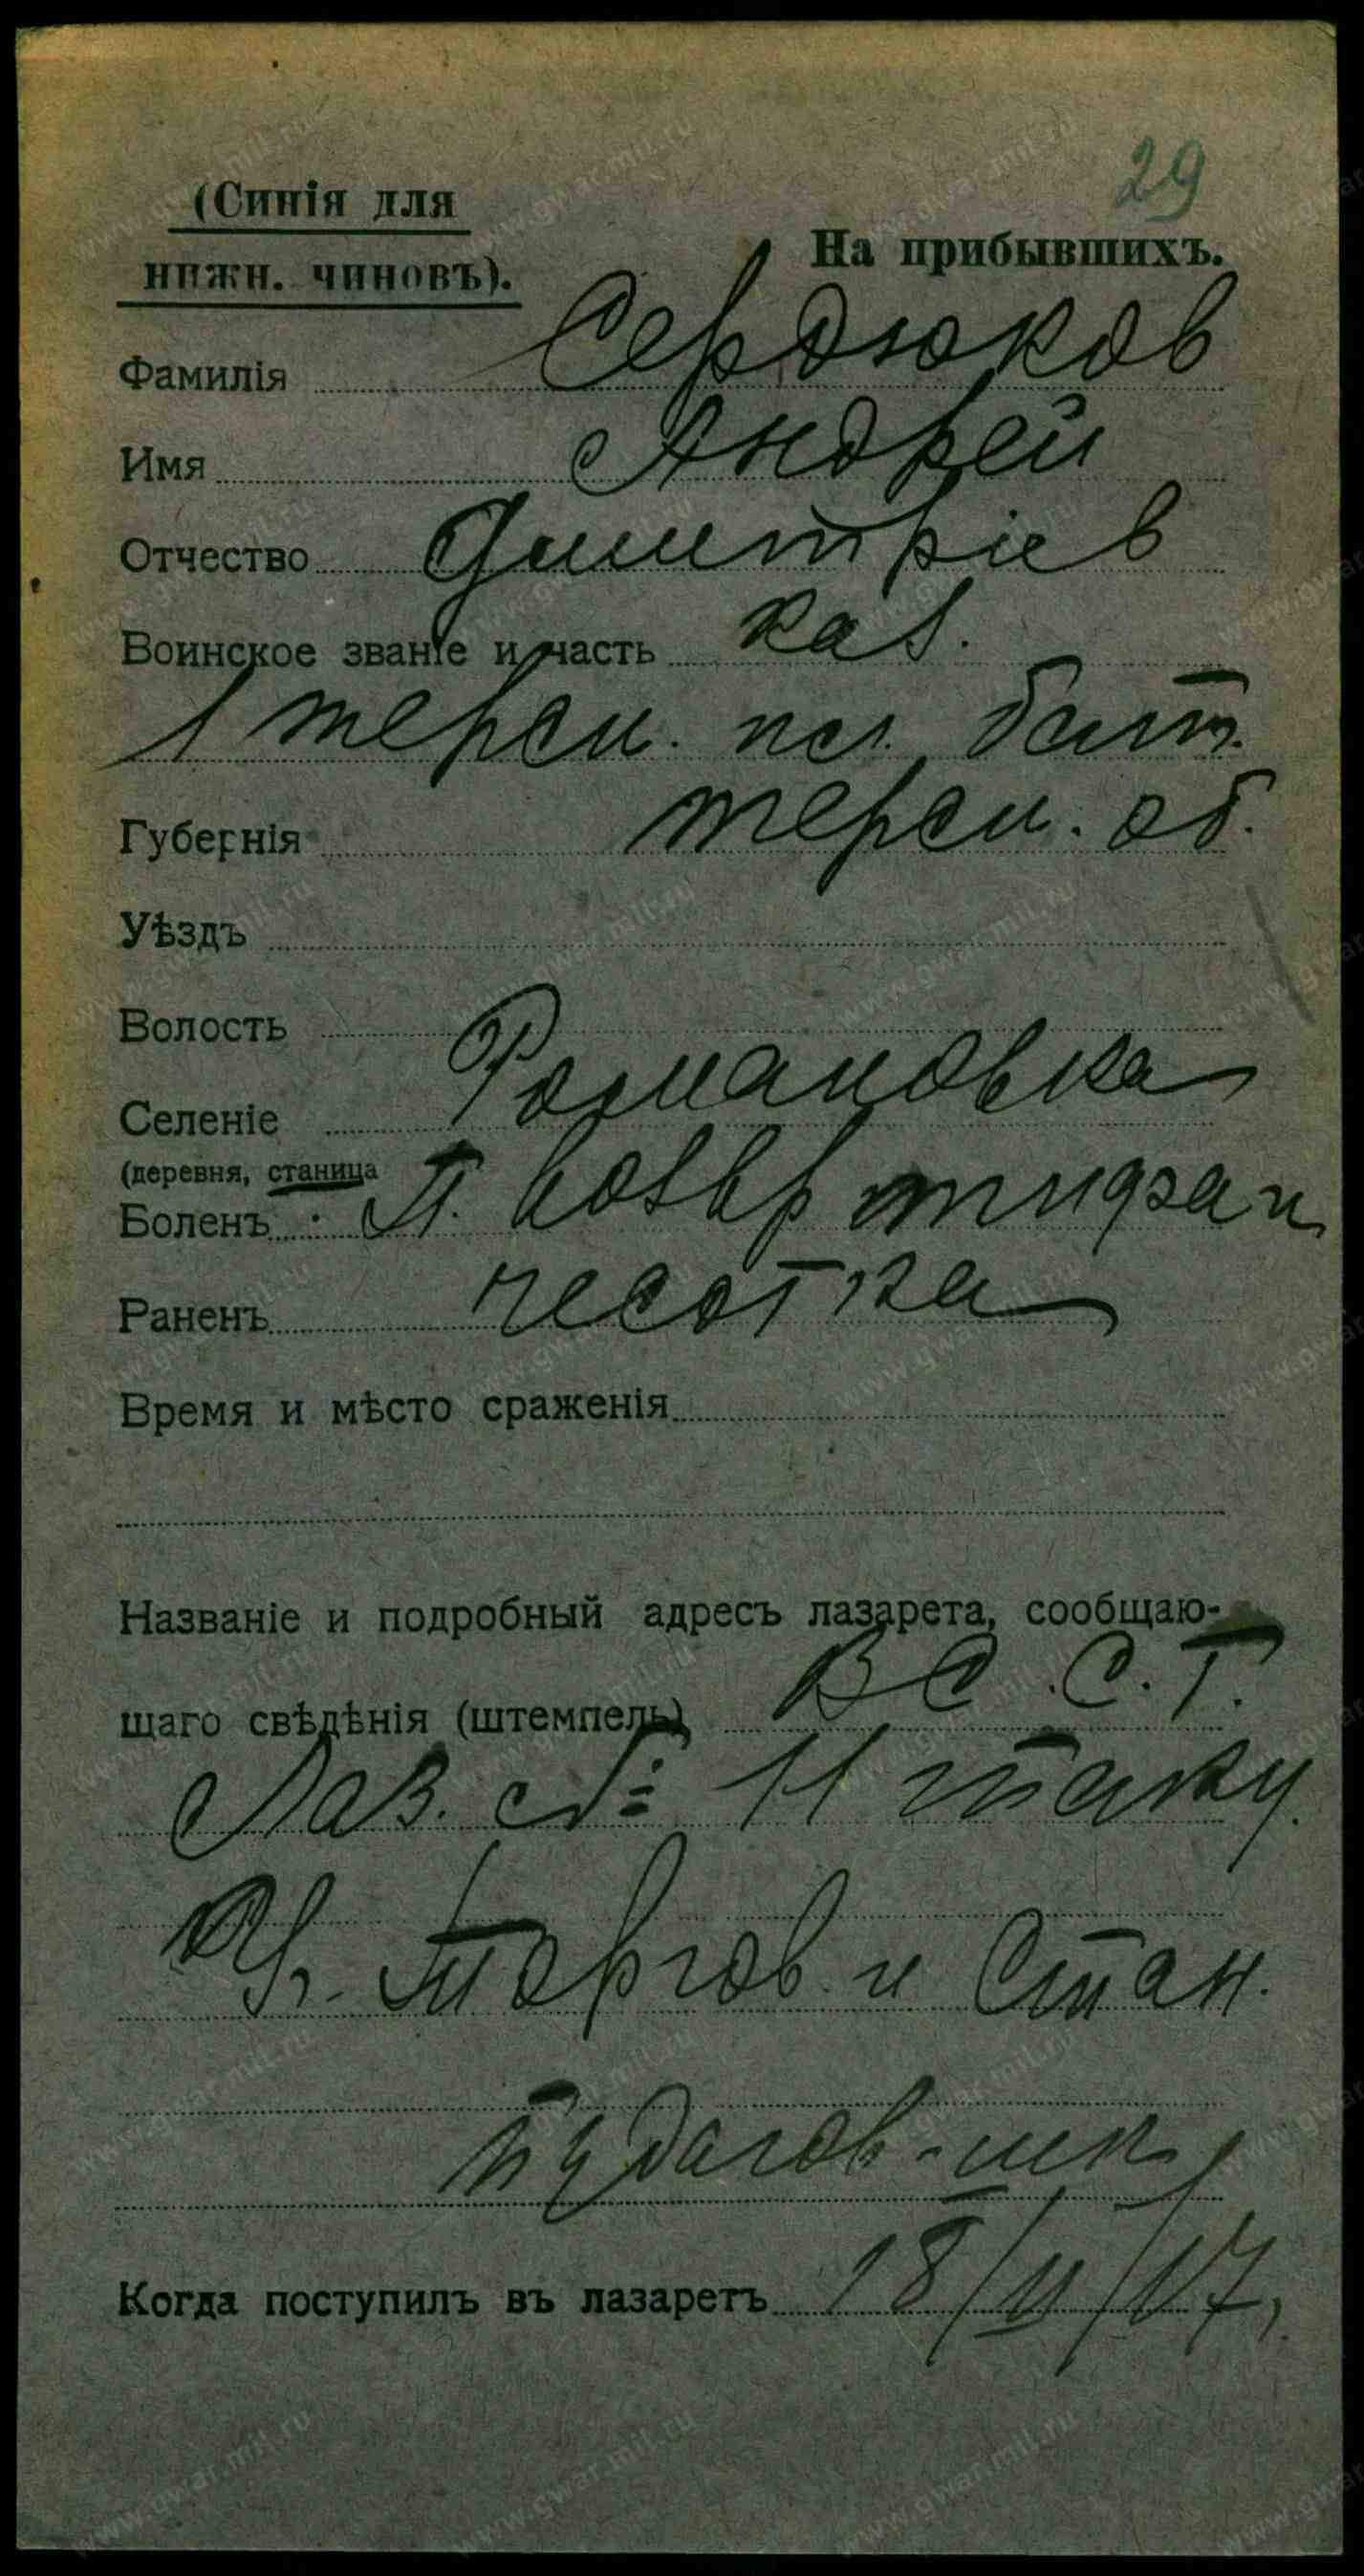 29
(Синія для
нижн. чиновъ).
На прибывшихъ.
Фамилія Сердюков
Имя Андрей
Отчество Димитріев
Воинское званіе и часть каз.
1 терск. пл. бат.
Губернія терск. об.
Уѣздъ
Волость
Селеніе Романовка
(деревня, станица
Боленъ П. возвр тифа и
Раненъ чесотка
Время и мѣсто сраженія
Названіе и подробный адресъ лазарета, сообщаю-
щаго свѣдѣнія (штемпель) В С. С. Г.
Лаз. № 11
Уг. Торгов. и Стан.
Когда поступилъ въ лазаретъ 18/II/17.